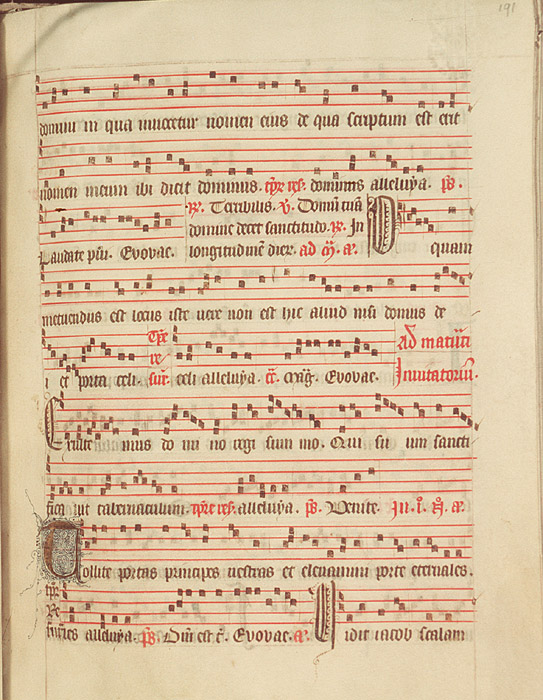 191
domini in qua invocetur nomen eius de qua scriptum est erit
nomen meum ibi dicit dominus. tpe res. dominus alleluya. ps.
Laudate pm. Evovae.
R. Terribilis. V. Domū tuā
domine decet sanctitudo. R. In
longitudinē dier. ad m. a.
O quam
metuendus est locus iste vere non est hic aliud nisi domus dei
et porta celi. Tpe re sur. celi alleluya. Evovae.
Ad matuti
Invitatoriū.
Exulte mus do mi no regi sum mo. Qui su um sancti
fica vit tabernaculum. tpe res. alleluya. ps. Venite. In. i. N. a.
Tollite portas principes vestras et elevamini porte eternales.
tpe Re
surres alleluya. ps. Dni est t. Evovae. a. Vidit iacob scalam